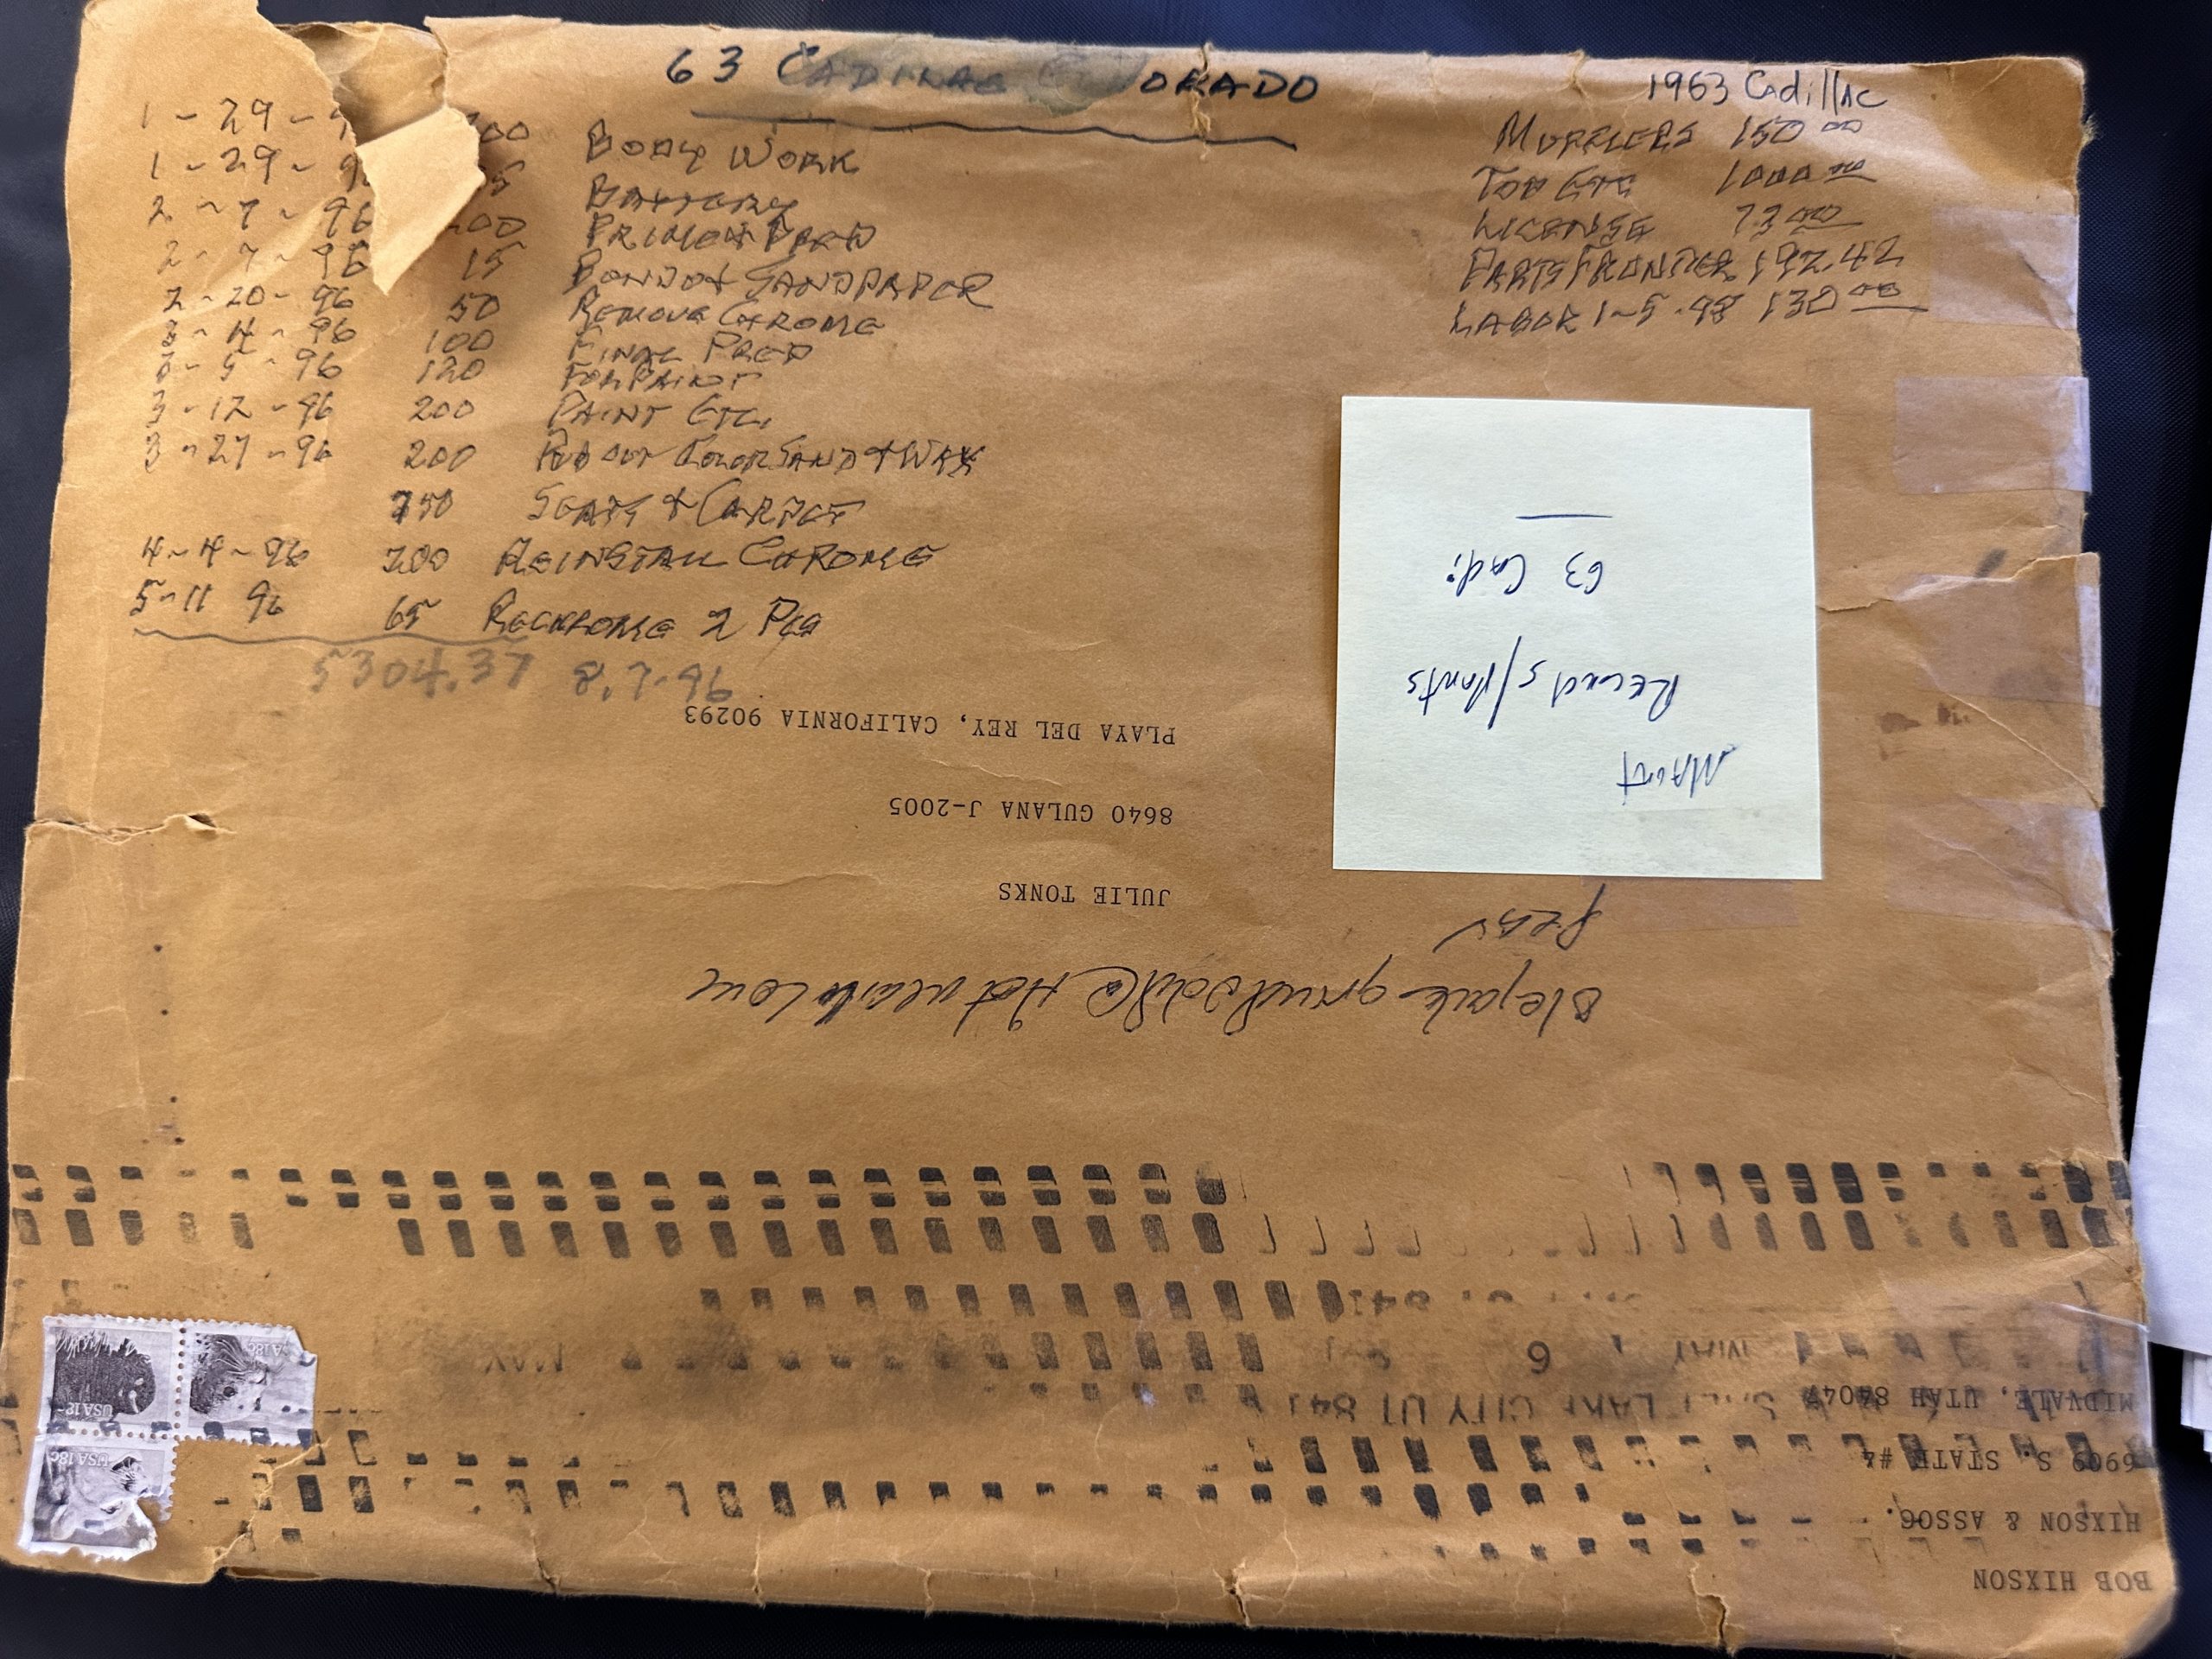 63 CADILAC ORADO
1-29-9 00 BODY WORK
1-29-96 5 BATTERY
2-7-96 00 PRIMER PREP
2-7-96 15 BONDO & SANDPAPER
2-20-96 50 REMOVE CHROME
3-4-96 100 FINAL PREP
3-5-96 120 FOR PAINT
3-12-96 200 PAINT ETC.
3-27-96 200 RUB OUT COLOR SAND & WAX
750 SEATS & CARPET
4-4-96 200 REINSTALL CHROME
5-11 96 65 RECKROME 2 PCS
5304.37 8.7.96
1963 Cadillac
MUFFLERS 150 00
TOP ETC 1000 00
LICENSE 73 00
PARTS FRONTIER 192.42
LABOR 1-5-98 130 00
Maint
Records/Parts
63 Cad.
BOB HIXSON
HIXSON & ASSOC.
6909 S. STATE #4
MIDVALE, UTAH 84047
SALT LAKE CITY UT 841
MAY 6
USA 18c
USA 18c
USA 18c
JULIE TONKS
8640 GULANA J-2005
PLAYA DEL REY, CALIFORNIA 90293